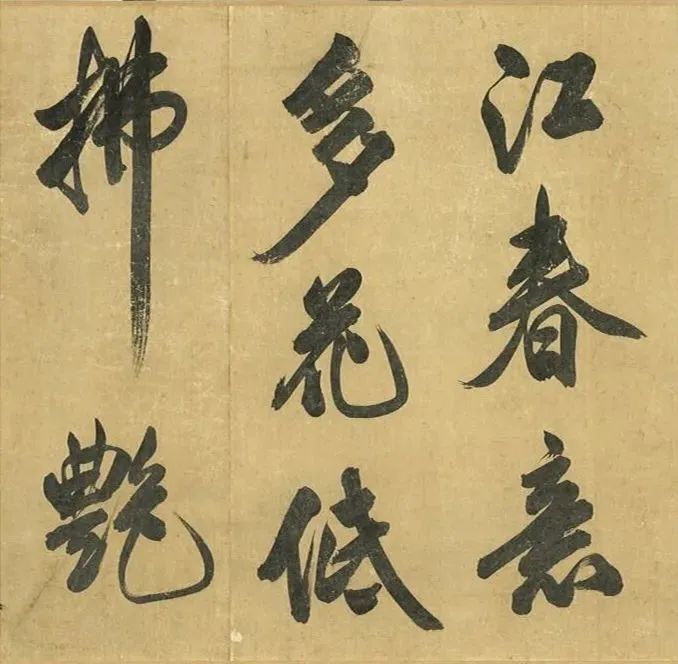 江春意
多花低
拂艷